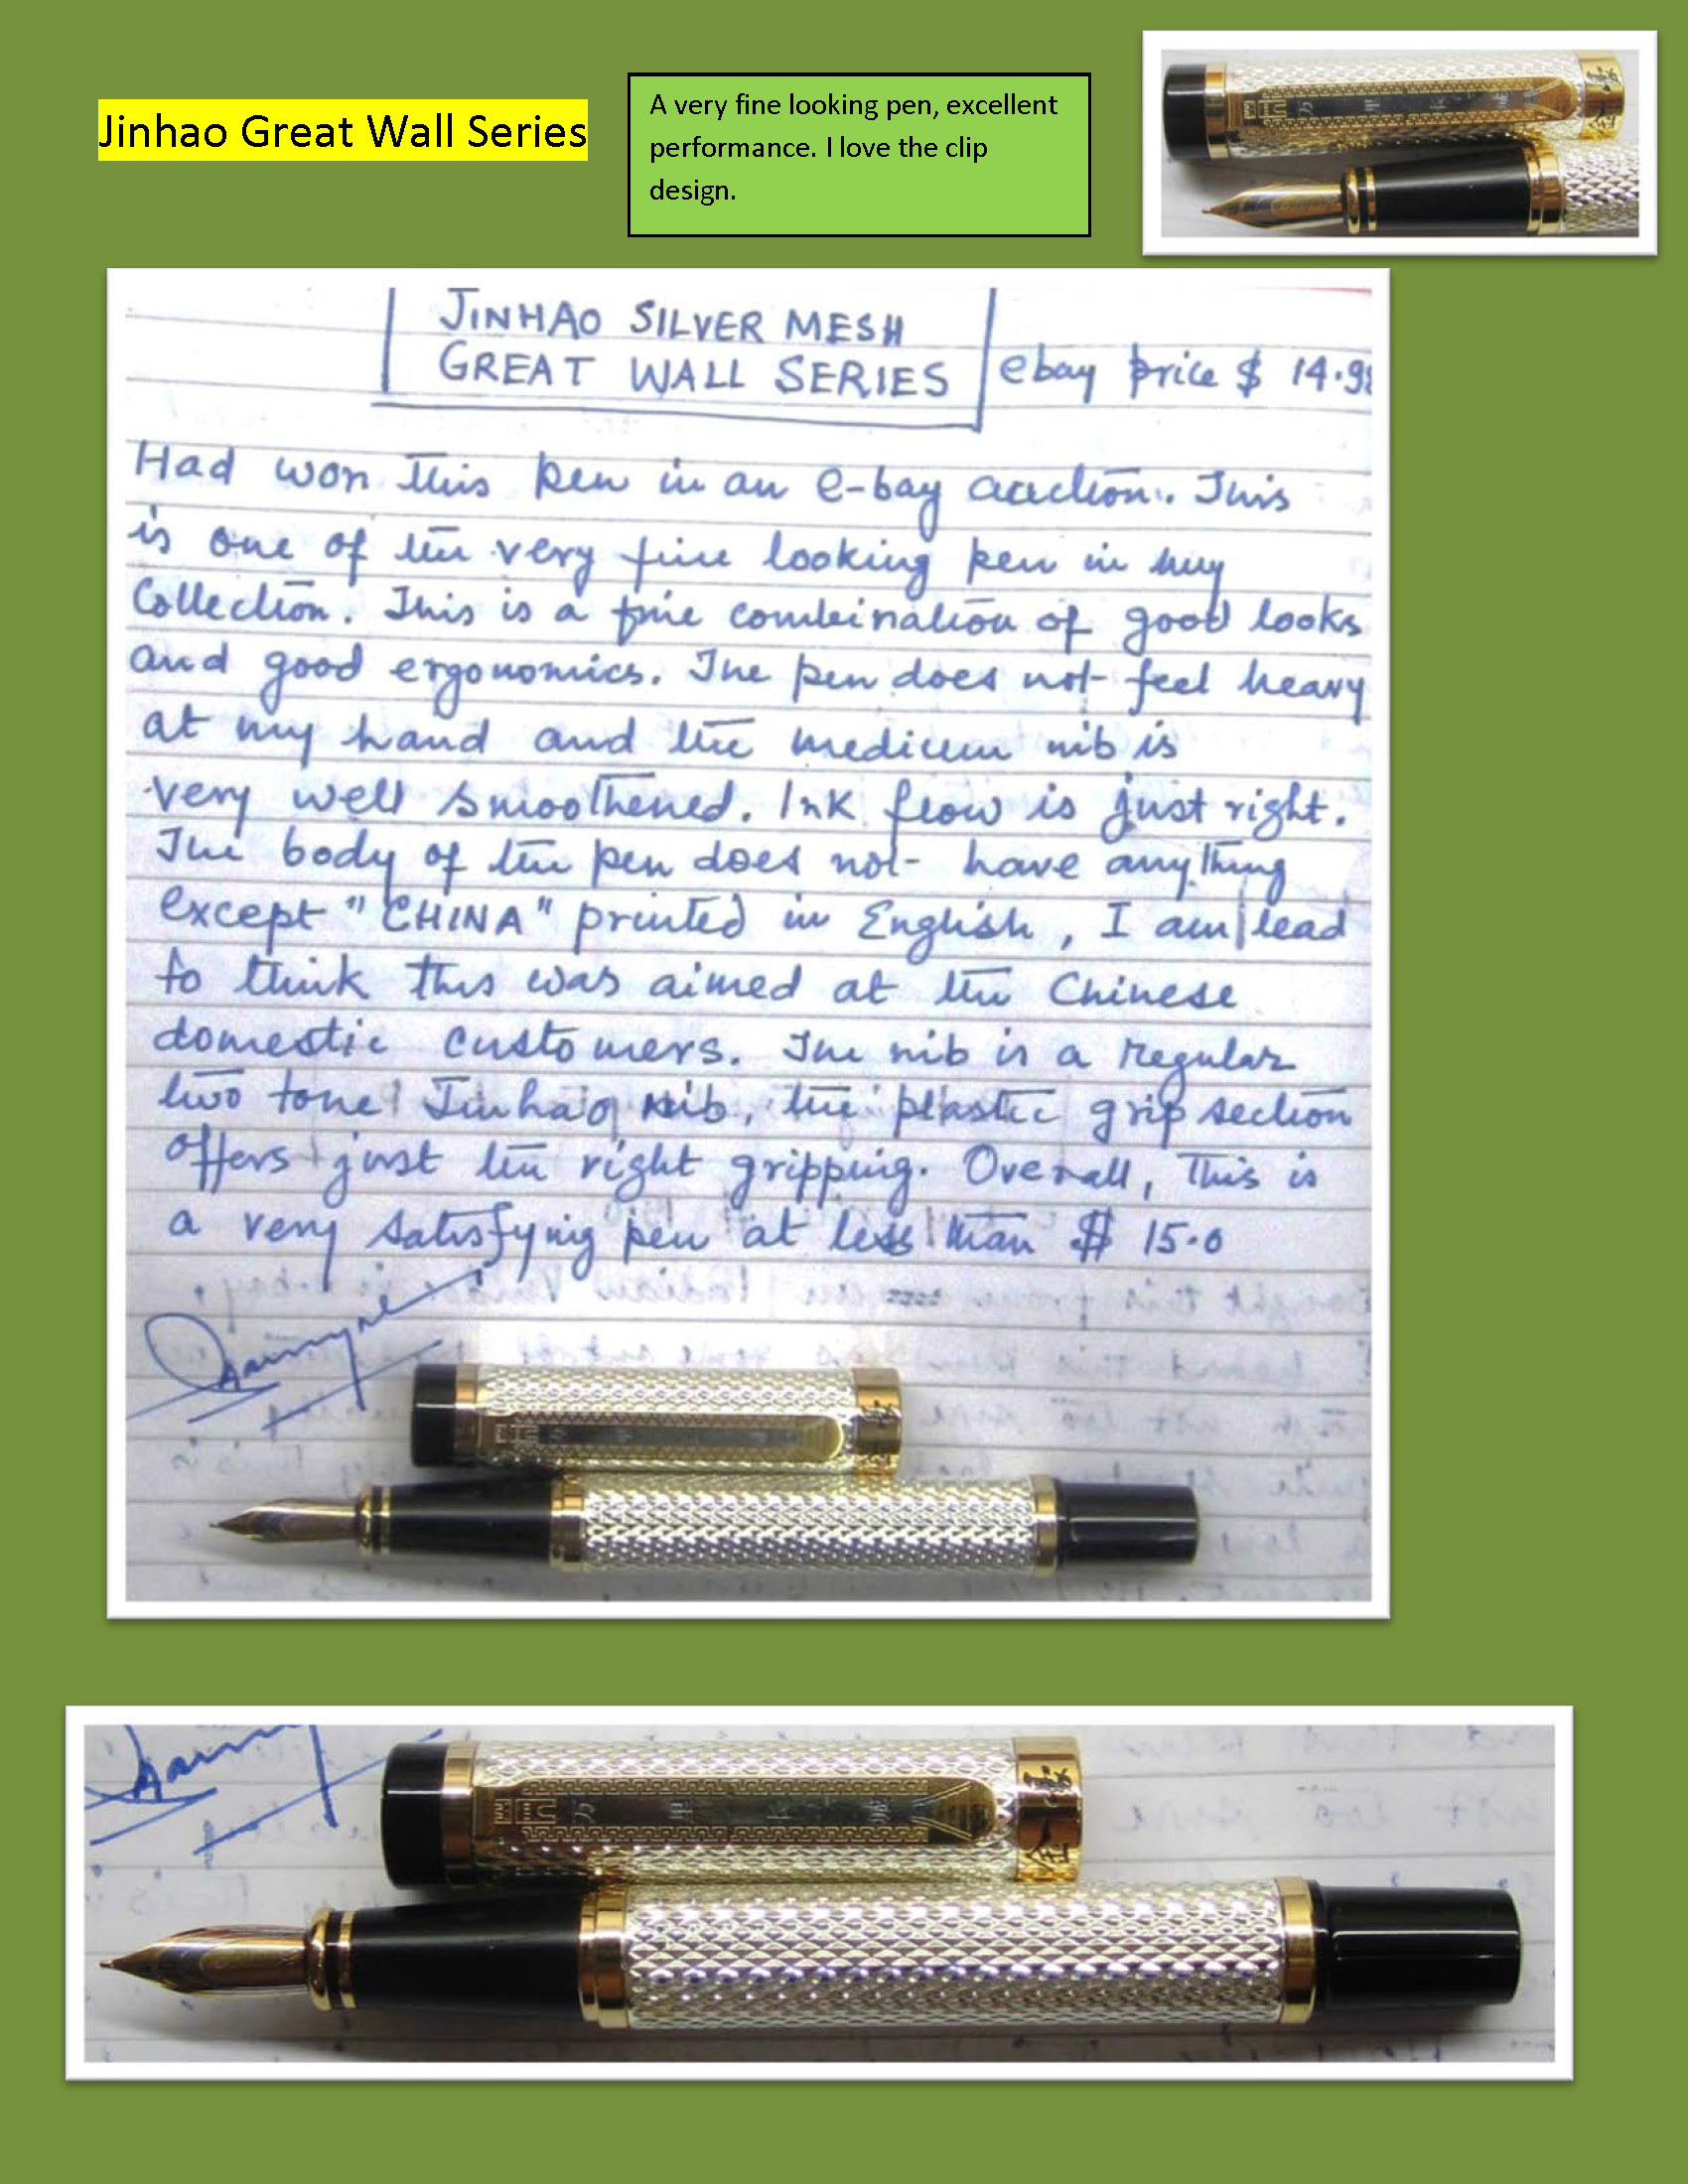 Jinhao Great Wall Series
A very fine looking pen, excellent
performance. I love the clip
design.
万里长城
金豪
JINHAO SILVER MESH
GREAT WALL SERIES
ebay price $ 14.9
Had won this pen in an e-bay auction. This
is one of the very fine looking pen in my
Collection. This is a fine combination of good looks
and good ergonomics. The pen does not feel heavy
at my hand and the medium nib is
very well smoothened. Ink flow is just right.
The body of the pen does not have anything
except "CHINA" printed in English, I am lead
to think this was aimed at the Chinese
domestic customers. The nib is a regular
two tone Jinhao nib, the plastic grip section
offers just the right gripping. Overall, this is
a very satisfying pen at less than $ 15.0
万里长城
金豪